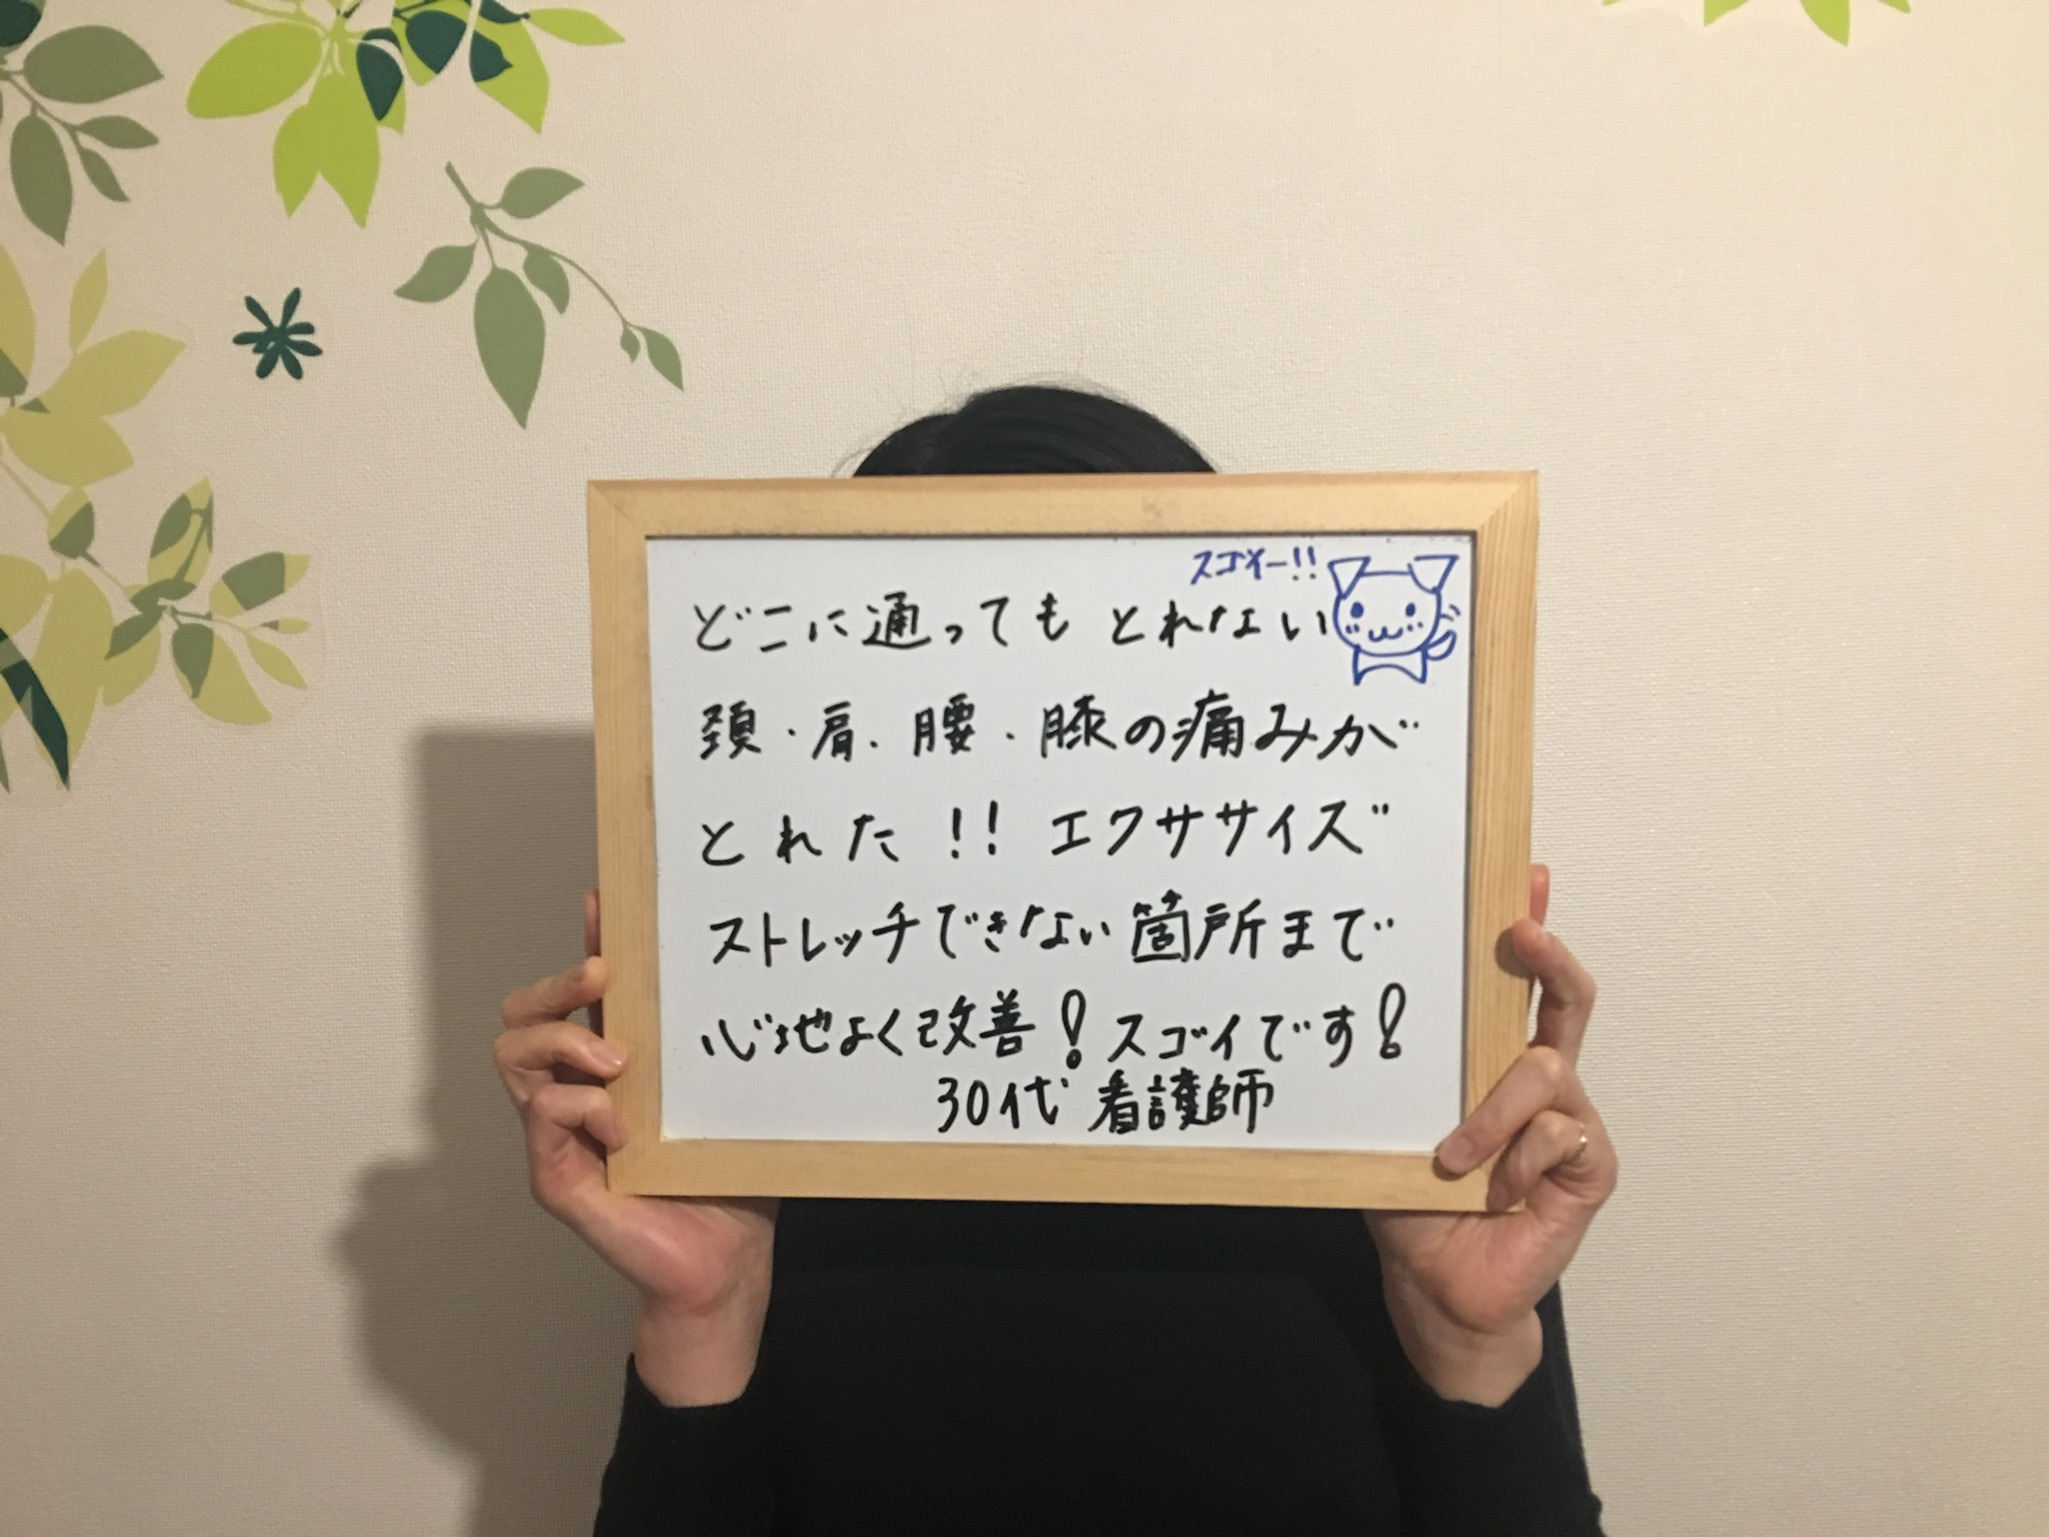 スゴイー!!
どこに通ってもとれない
頚・肩・腰・膝の痛みが
とれた!! エクササイズ
ストレッチできない箇所まで
心地よく改善!スゴイです!
30代 看護師